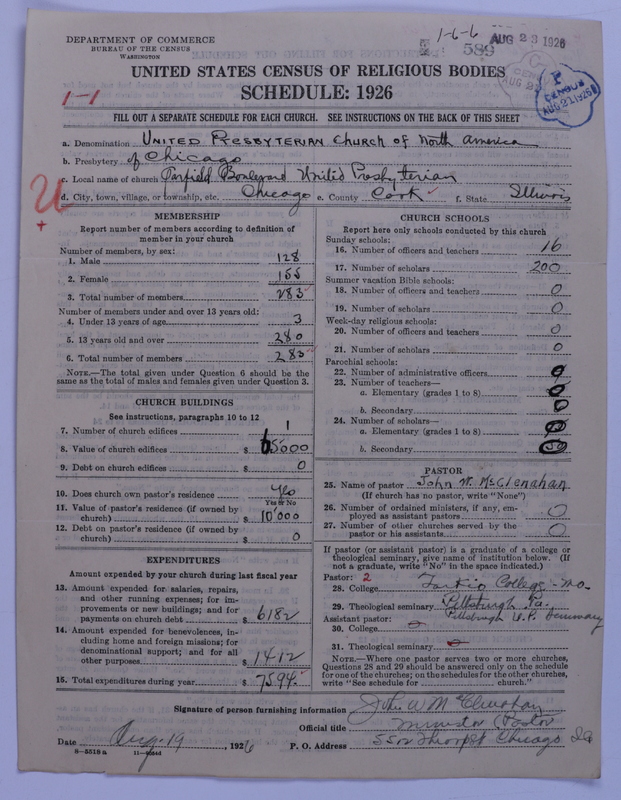 DEPARTMENT OF COMMERCE
BUREAU OF THE CENSUS
WASHINGTON
1-6-6
589
AUG 23 1926
UNITED STATES CENSUS OF RELIGIOUS BODIES
SCHEDULE: 1926
1-1
FILL OUT A SEPARATE SCHEDULE FOR EACH CHURCH. SEE INSTRUCTIONS ON THE BACK OF THIS SHEET
a. Denomination United Presbyterian Church of North America
b. Presbytery of Chicago
c. Local name of church Garfield Boulevard United Presbyterian
d. City, town, village, or township, etc. Chicago e. County Cook f. State Illinois
MEMBERSHIP
Report number of members according to definition of
member in your church
Number of members, by sex:
1. Male 128
2. Female 155
3. Total number of members 283
Number of members under and over 13 years old:
4. Under 13 years of age 3
5. 13 years old and over 280
6. Total number of members 283
NOTE.—The total given under Question 6 should be the
same as the total of males and females given under Question 3.
CHURCH BUILDINGS
See instructions, paragraphs 10 to 12
7. Number of church edifices 1
8. Value of church edifices $ 65000
9. Debt on church edifices $ 0
10. Does church own pastor's residence yes
Yes or No
11. Value of pastor's residence (if owned by
church) $ 10000
12. Debt on pastor's residence (if owned by
church) $ 0
EXPENDITURES
Amount expended by your church during last fiscal year
13. Amount expended for salaries, repairs,
and other running expenses; for im-
provements or new buildings; and for
payments on church debt $ 6182
14. Amount expended for benevolences, in-
cluding home and foreign missions; for
denominational support; and for all
other purposes $ 1412
15. Total expenditures during year $ 7594
CHURCH SCHOOLS
Report here only schools conducted by this church
Sunday schools:
16. Number of officers and teachers 16
17. Number of scholars 200
Summer vacation Bible schools:
18. Number of officers and teachers 0
19. Number of scholars 0
Week-day religious schools:
20. Number of officers and teachers 0
21. Number of scholars 0
Parochial schools:
22. Number of administrative officers 0
23. Number of teachers—
a. Elementary (grades 1 to 8) 0
b. Secondary 0
24. Number of scholars—
a. Elementary (grades 1 to 8) 0
b. Secondary
PASTOR
25. Name of pastor John W. McClenahan
(If church has no pastor, write "None")
26. Number of ordained ministers, if any, em-
ployed as assistant pastors 0
27. Number of other churches served by the
pastor or his assistants 0
If pastor (or assistant pastor) is a graduate of a college or
theological seminary, give name of institution below. (If
not a graduate, write "No" in the space indicated.)
Pastor: 2
28. College Tarkio College - Mo.
29. Theological seminary Pittsburgh Pa.
Assistant pastor: Pittsburgh U.P. Seminary
30. College 0
31. Theological seminary 0
NOTE.—Where one pastor serves two or more churches,
Questions 28 and 29 should be answered only on the schedule
for one of the churches; on the schedules for the other churches,
write "See schedule for church."
Signature of person furnishing information John W McClenahan
Official title Minister (Pastor
Date Aug. 19 1926 P. O. Address Chicago
8-5518 a